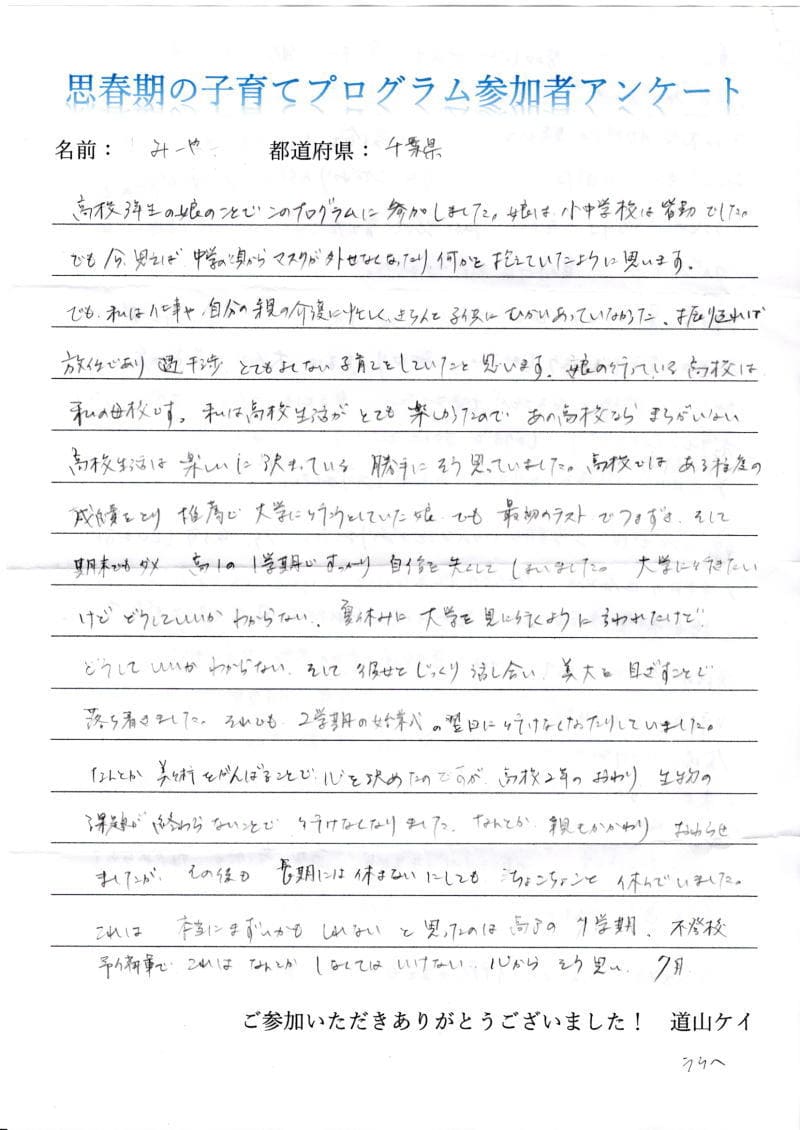 思春期の子育てプログラム参加者アンケート
名前： みーや 都道府県： 千葉県
高校3年生の娘のことでこのプログラムに参加しました。娘は小中学校は皆勤でした。
でも今、思えば 中学の頃からマスクが外せなくなったり何かと抱えていたように思います。
でも、私は仕事や、自分の親の介護に忙しく、きちんと子供にむかいあっていなかった、振り返れば
放任であり 過干渉 とてもよくない子育てをしていたと思います。娘の行っている高校は
私の母校です。私は高校生活がとても楽しかったので あの高校なら まちがいない
高校生活は 楽しいに決まっている 勝手にそう思っていました。高校では ある程度の
成績をとり 推薦で 大学に行こうとしていた娘。でも 最初のテストでつまずき、そして
期末でもダメ 高1の1学期ですっかり 自信を失くして しまいました。 大学に行きたい
けど どうしていいか わからない、夏休みに 大学を見に行くように 言われたけど
どうして いいか わからない、そして 彼女と じっくり 話し合い、美大を 目ざすことで
落ち着きました。それでも、2学期の始業式の翌日に行けなくなったりしていました。
なんとか 美術をがんばることで、心を決めたのですが、高校2年のおわり 生物の
課題が 終わらないことで 行けなくなりました、なんとか 親もかかわり おわらせ
ましたが、その後も 長期には休まないにしても ちょこちょこと 休んでいました。
これは 本当にまずいかも しれない と思ったのは 高3の 1学期、不登校
予備軍で これは なんとか しなくては いけない 心から そう思い、7月
ご参加いただきありがとうございました！ 道山ケイ
うらへ